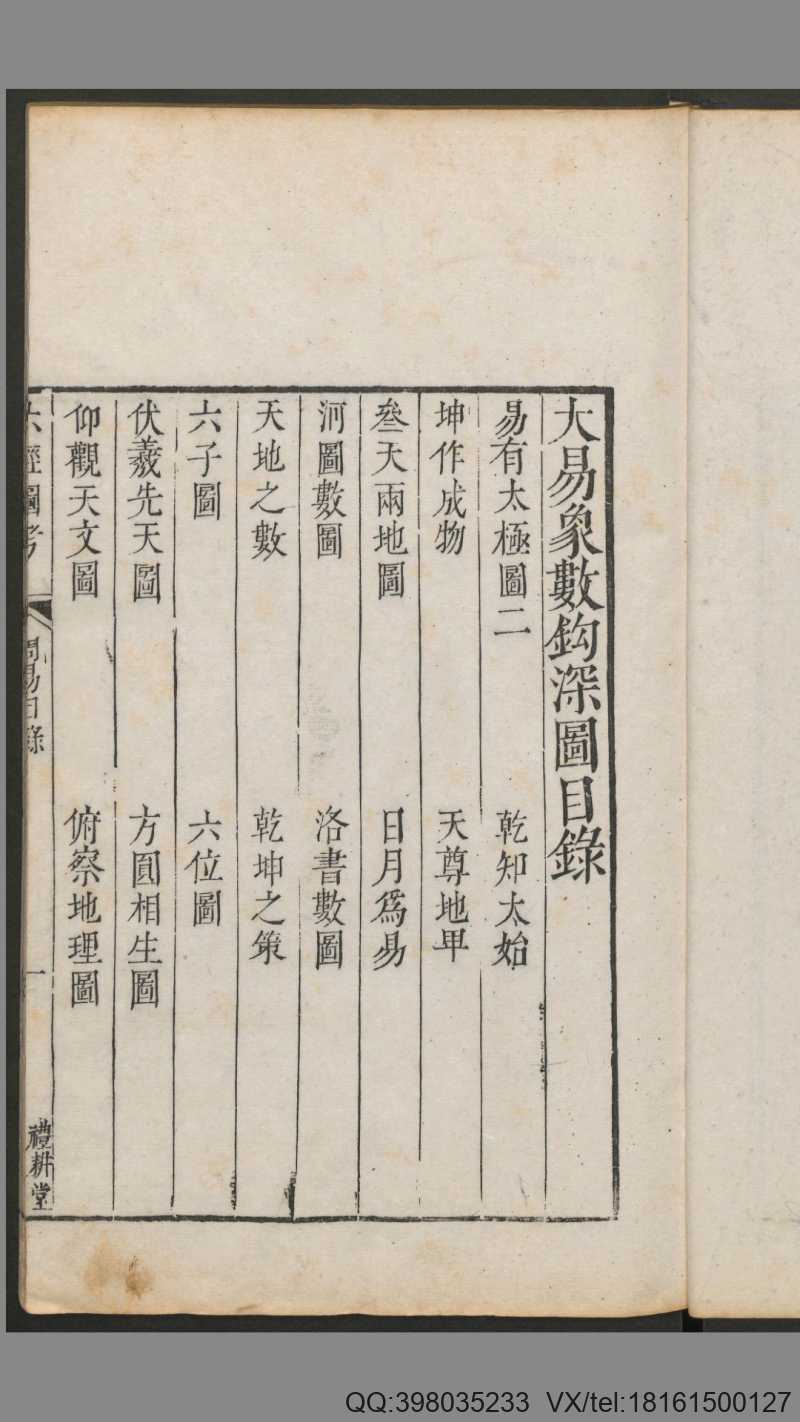 大易象數鈎深圖目錄
易有太極圖二　乾知太始
坤作成物　天尊地卑
叄天兩地圖　日月爲易
河圖數圖　洛書數圖
天地之數　乾坤之策
六子圖　六位圖
伏羲先天圖　方圓相生圖
仰觀天文圖　俯察地理圖
六經圖考　周易目錄　一　禮耕堂
QQ:398035233 VX/tel:18161500127